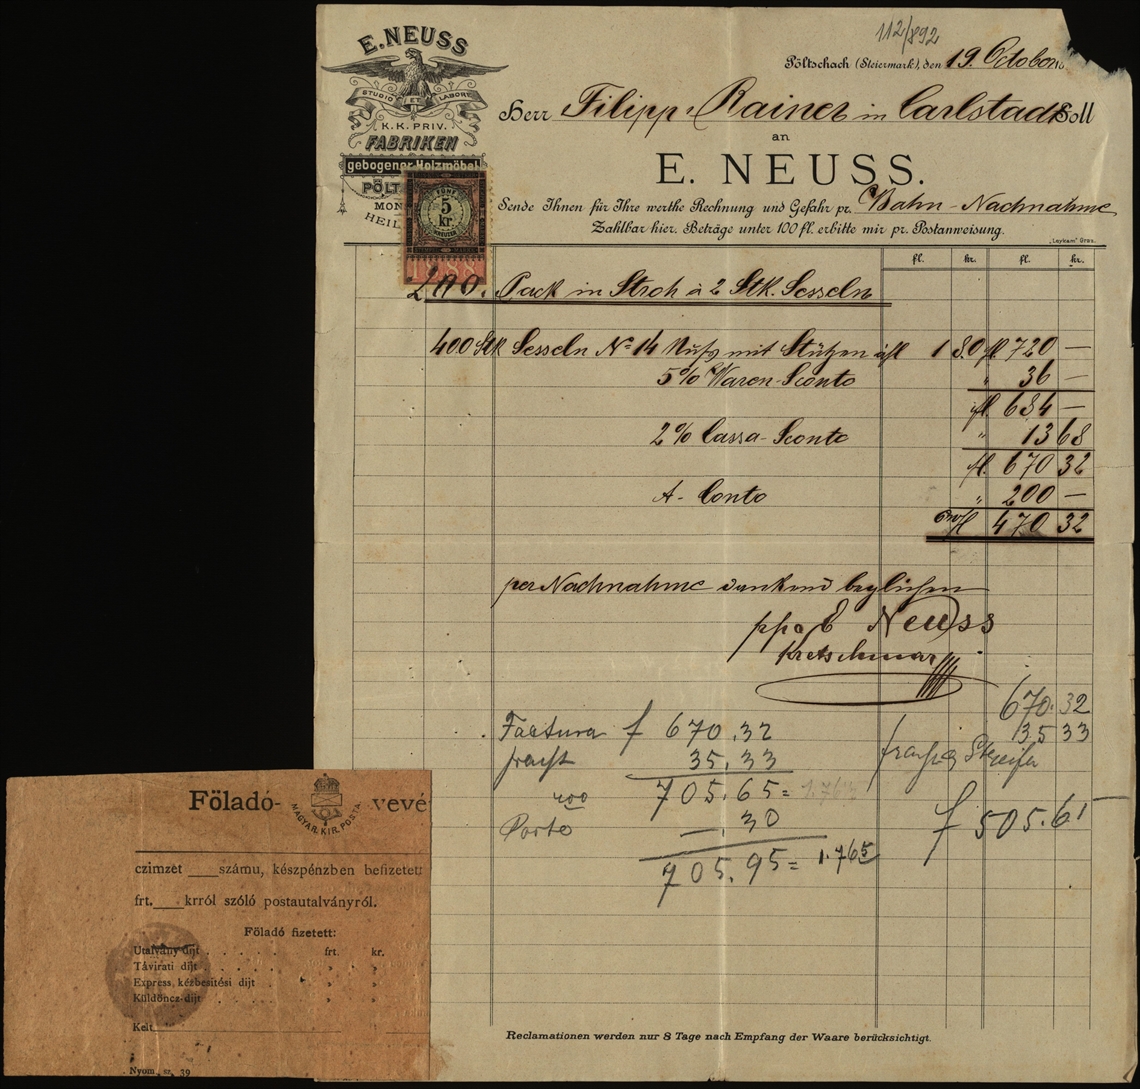 112/892
E. NEUSS
STUDIO ET LABORE
K.K. PRIV.
FABRIKEN
gebogener Holzmöbel
PÖLT
MON
HEIL
FÜNF
5
kr.
KREUZER
1888
Pöltschach (Steiermark), den 19. October
Herr Filipp Rainer in Carlstadt Soll
an
E. NEUSS.
Sende Ihnen für Ihre werthe Rechnung und Gefahr pr. Bahn-Nachnahme
Zahlbar hier. Beträge unter 100 fl. erbitte mir pr. Postanweisung.
„Leykam" Graz.
fl. kr. fl. kr.
200. Pack in Stroh à 2 Stk. Sesseln
400 Stk Sesseln No 14 Nuss mit Stützen à fl 1 80 fl. 720 —
5% Waren-Sconto „ 36 —
fl. 684 —
2% Cassa-Sconto „ 13 68
fl. 670 32
A-Conto „ 200 —
fl 470 32
per Nachnahme dankend beglichen
ppa E Neuss
Kretschmar
670.32
35 33
Factura f 670.32
fracht 35.33
705.65 =
400
Porto —.30
705.95 = 1.765
f 505.65
Reclamationen werden nur 8 Tage nach Empfang der Waare berücksichtigt.
Föladó- vevé
MAGYAR. KIR. POSTA
czimzét ___ számu, készpénzben befizetett
frt. ___ krról szóló postautalványról.
Föladó fizetett:
Utalvány dijt . . . . frt. kr.
Távirati dijt . . . . » »
Express kézbesitési dijt . » »
Küldöncz-dijt . . . . » »
Kelt
Nyom. sz. 39